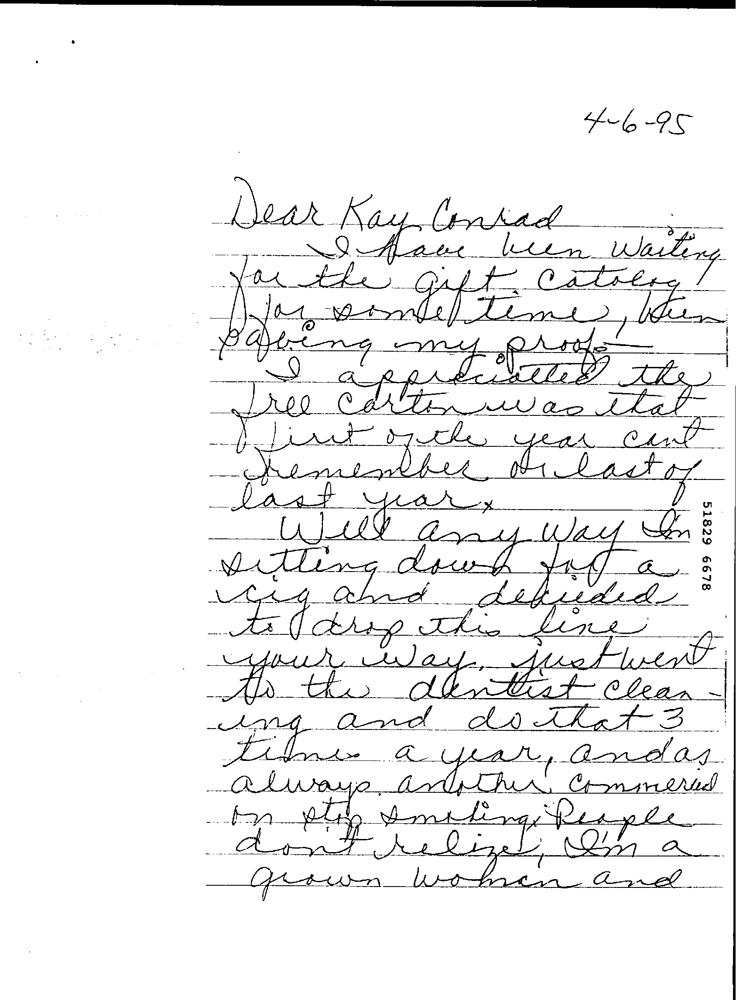 4-6-95
Dear Kay Conrad
I have been waiting
for the gift catolog
for some time, been
saveing my proofs
I appreciatted the
free carton was that
first of the year cant
remember or last of
last year.
Well any way I'm
sitting down for a
cig and decieded
to drop this line
your way, just went
to the dentist clean-
ing and do that 3
times a year, and as
always another commerical
on stop smoking. People
don't relize, I'm a
grown woman and
51829 6678